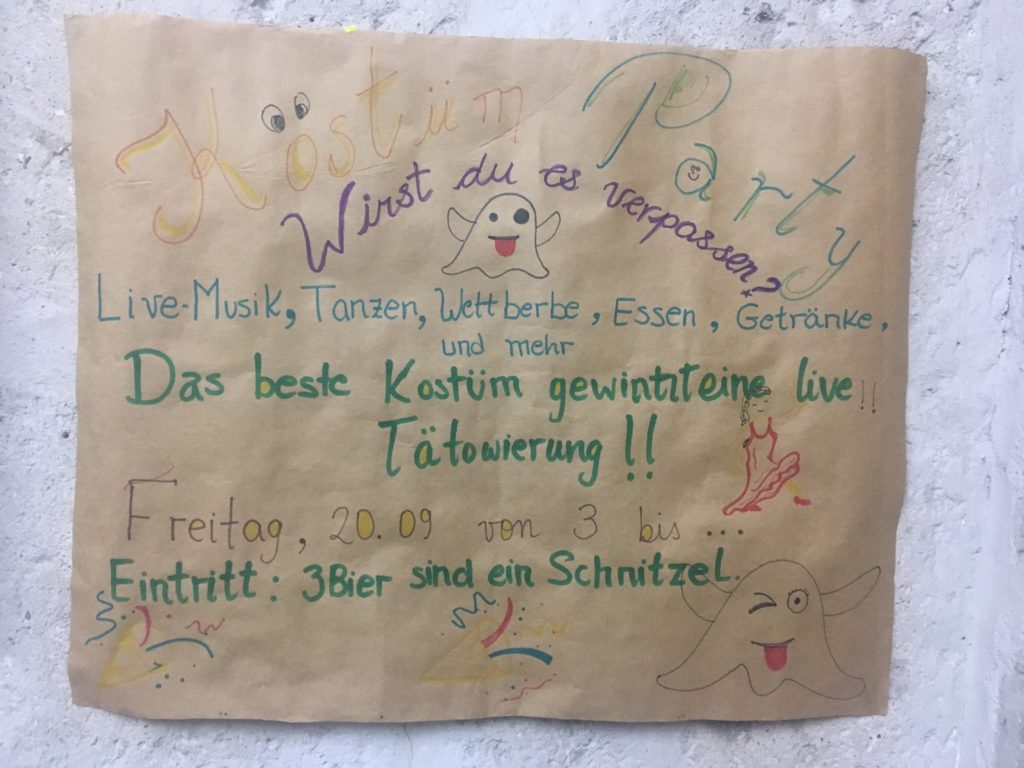 Kostüm Party
Wirst du es verpassen?
Live-Musik, Tanzen, Wettberbe, Essen, Getränke,
und mehr
Das beste Kostüm gewinnt eine live !!
Tätowierung !!
Freitag, 20.09 von 3 bis ...
Eintritt: 3Bier sind ein Schnitzel.